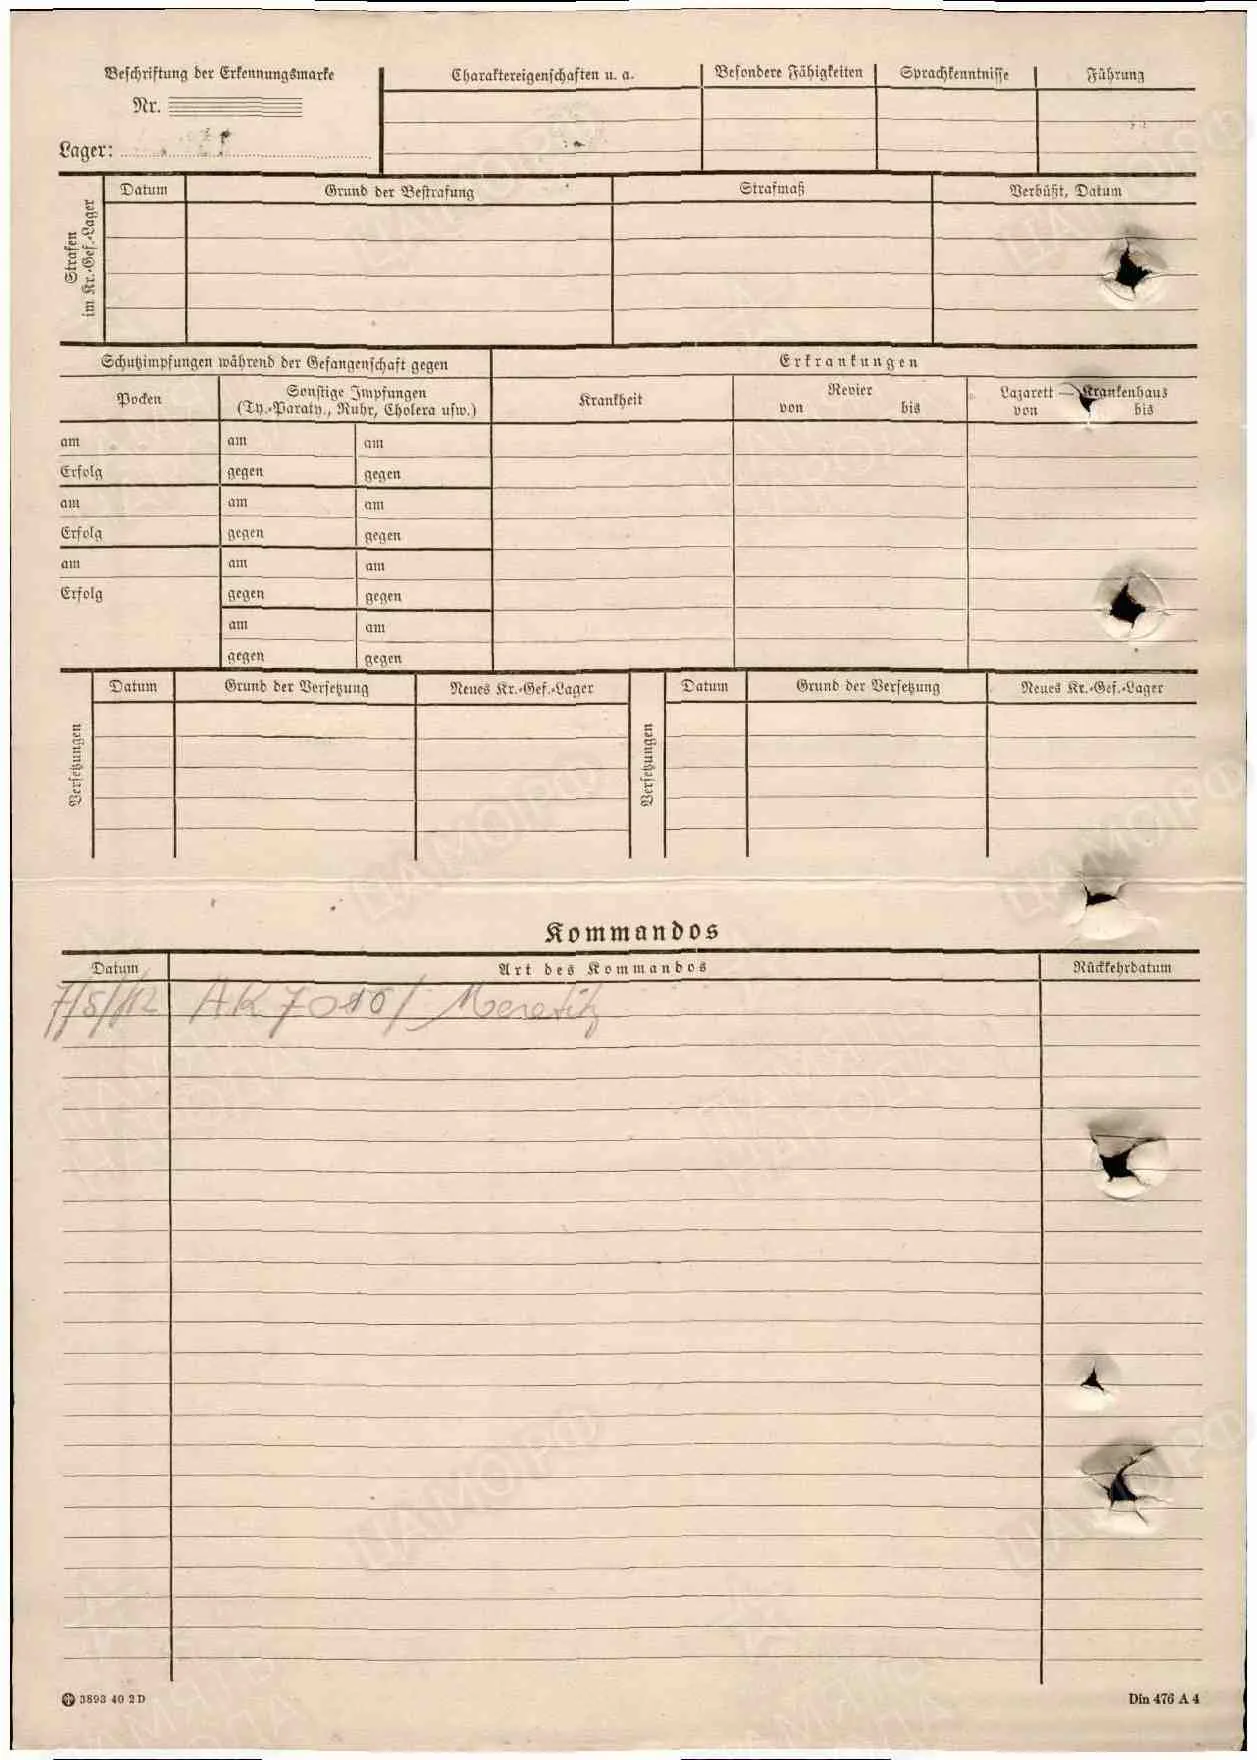 Beschriftung der Erkennungsmarke
Nr.
Lager:
Charaktereigenschaften u. a.
Besondere Fähigkeiten
Sprachkenntnisse
Führung
Strafen
im Kr.-Gef.-Lager
Datum
Grund der Bestrafung
Strafmaß
Verbüßt, Datum
Schutzimpfungen während der Gefangenschaft gegen
Erkrankungen
Pocken
Sonstige Impfungen
(Ty.-Paraty., Ruhr, Cholera usw.)
Krankheit
Revier
von bis
Lazarett — Krankenhaus
von bis
am am am
Erfolg gegen gegen
am am am
Erfolg gegen gegen
am am am
Erfolg gegen gegen
am am
gegen gegen
Versetzungen
Datum Grund der Versetzung Neues Kr.-Gef.-Lager
Versetzungen
Datum Grund der Versetzung Neues Kr.-Gef.-Lager
Kommandos
Datum Art des Kommandos Rückkehrdatum
AK
3893 40 2 D
Din 476 A 4
ЦАМО РФ